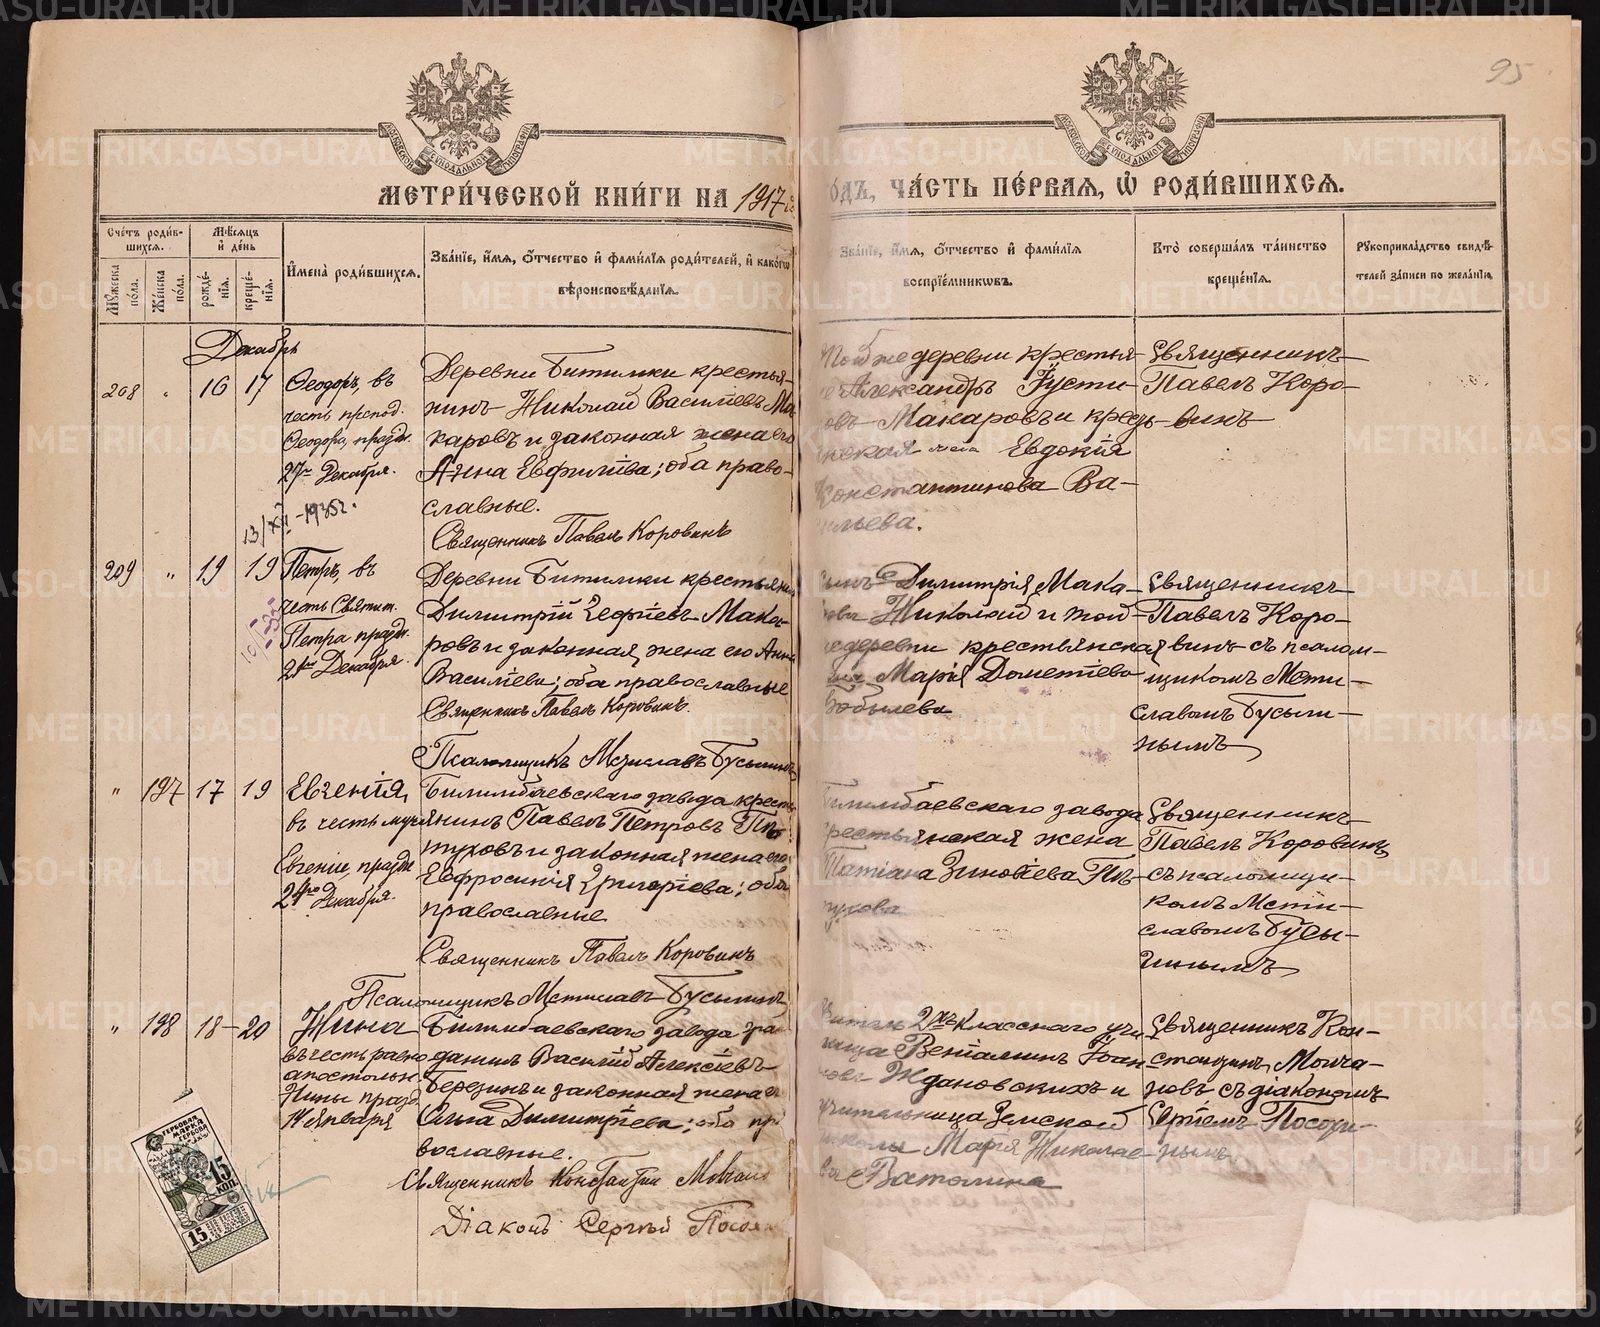 95
МЕТРИ́ЧЕСКОЙ КНИ́ГИ НА 1917
ЧА́СТЬ ПЕ́РВАЯ, Ѡ҆ РОДИ́ВШИХСЯ.
Счетъ роди́в-
шихся.
Мѣсяцъ
и҆ де́нь
Мꙋжеска
по́ла.
Же́нска
по́ла.
рожде́-
нїя.
креще́-
нїя.
И҆мена̀ роди́вшихся.
Зва́нїе, и҆́мя, ѻ҆́тчество и҆ фами́лїя роди́телей, и҆ како́гѡ
вѣроисповѣ́данїя.
Зва́нїе, и҆́мя, ѻ҆́тчество и҆ фами́лїя
воспрїе́мникѡвъ.
Кто̀ соверша́лъ та́инство
креще́нїя.
Рꙋкоприкла́дство свидѣ́-
телей за́писи по жела́нїю.
Декабрь
208 „ 16 17
Ѳеодоръ, въ
честь препод.
Ѳеодора, праздн.
27го Декабря.
Деревни Битимки крестья-
нинъ Николай Василіевъ Ма
каровъ и законная жена его
Анна Евфиміева; оба право-
славные.
Священникъ Павелъ Коровинъ
Той же деревни крестья-
Александръ Іусти-
овъ Макаровъ и кресть-
янская Евдокія
Константинова Ва-
сильева.
Священникъ
Павелъ Коро-
винъ
13/XII-1935г.
209 „ 19 19
Петръ, въ
честь Святит.
Петра праздн.
21го Декабря.
Деревни Битимки крестьянин
Димитрій Макa-
ровъ и законная жена его Анна
Василіева; оба православные
Священникъ Павелъ Коровинъ.
Псаломщикъ Мстиславъ Бусыгинъ
сынъ Димитрія Мака-
рова Николай и той-
же деревни крестьянская
Марія Дометіева
Бобылева
Священникъ
Павелъ Коро-
винъ съ псалом-
щикомъ Мсти-
славомъ Бусыги-
нымъ
„ 197 17 19
Евгенія,
въ честь муч.
Евгеніи, праздн.
24го Декабря.
Билимбаевскаго завода кресть
янинъ Павелъ Петровъ Пѣ-
туховъ и законная жена его
Евфросинія Григоріева; оба
православные
Священникъ Павелъ Коровинъ
Псаломщикъ Мстиславъ Бусыгинъ
Билимбаевскаго завода
крестьянская жена
Татіана Зиновіева Пѣ-
тухова
Священникъ
Павелъ Коровинъ
съ псаломщи-
комъ Мсти-
славомъ Бусы-
гинымъ
„ 198 18 20
Нина
въ честь равно
апостольн.
Нины празд.
14 Января
Билимбаевскаго завода граж
данинъ Василій Алексіевъ
Березинъ и законная жена ег
Ольга Димитріева; оба пра
вославные.
Священникъ Константинъ Молчано
Діаконъ Сергій Посох
2хъ-Класснаго учи
лища Веніаминъ Іоан
новъ Ждановскихъ и
учительница Земской
школы Марія Николае-
ва Ватолина
Священникъ Кон-
стантинъ Молча-
новъ съ діакономъ
Сергіемъ Посохи-
нымъ
ГЕРБОВАЯ
МАРКА
15
КОП.
15